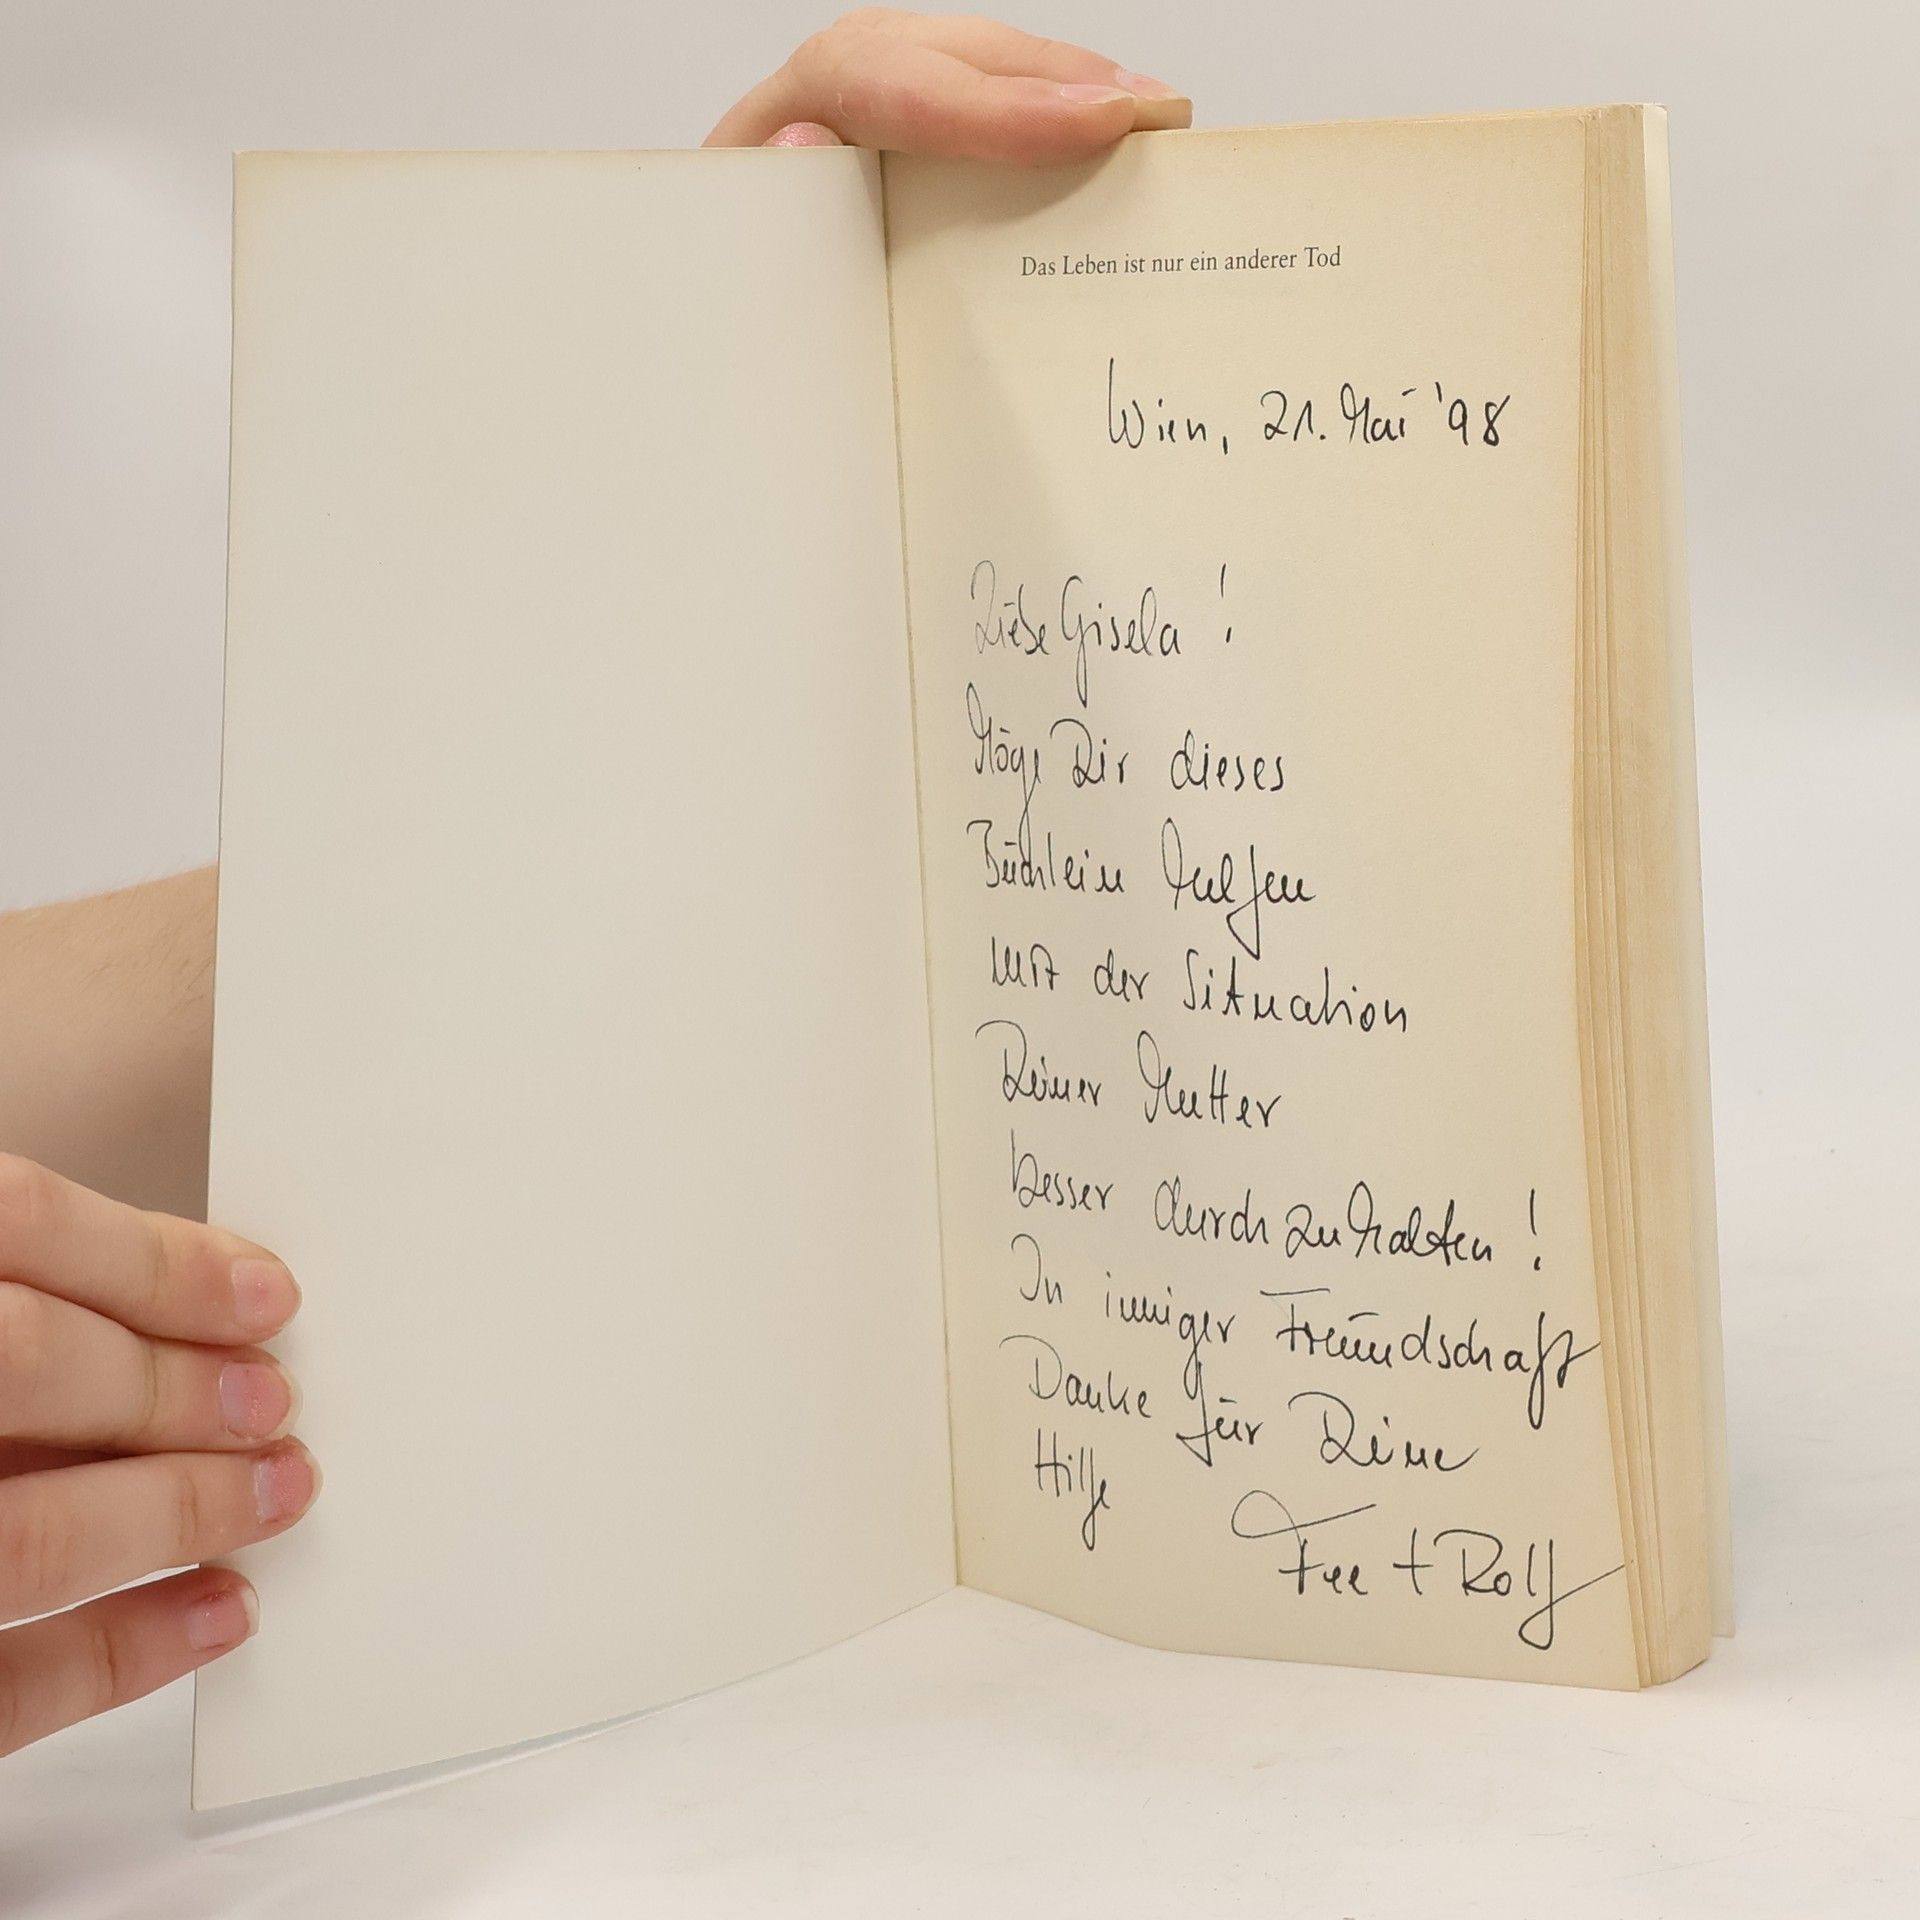 Das Leben ist nur ein anderer Tod
Wien, 21. Mai '98
Liebe Gisela !
Möge Dir dieses
Büchlein helfen
mit der Situation
Deiner Mutter
besser durchzuhalten !
In inniger Freundschaft
Danke für Deine
Hilfe
Fee + Rolf